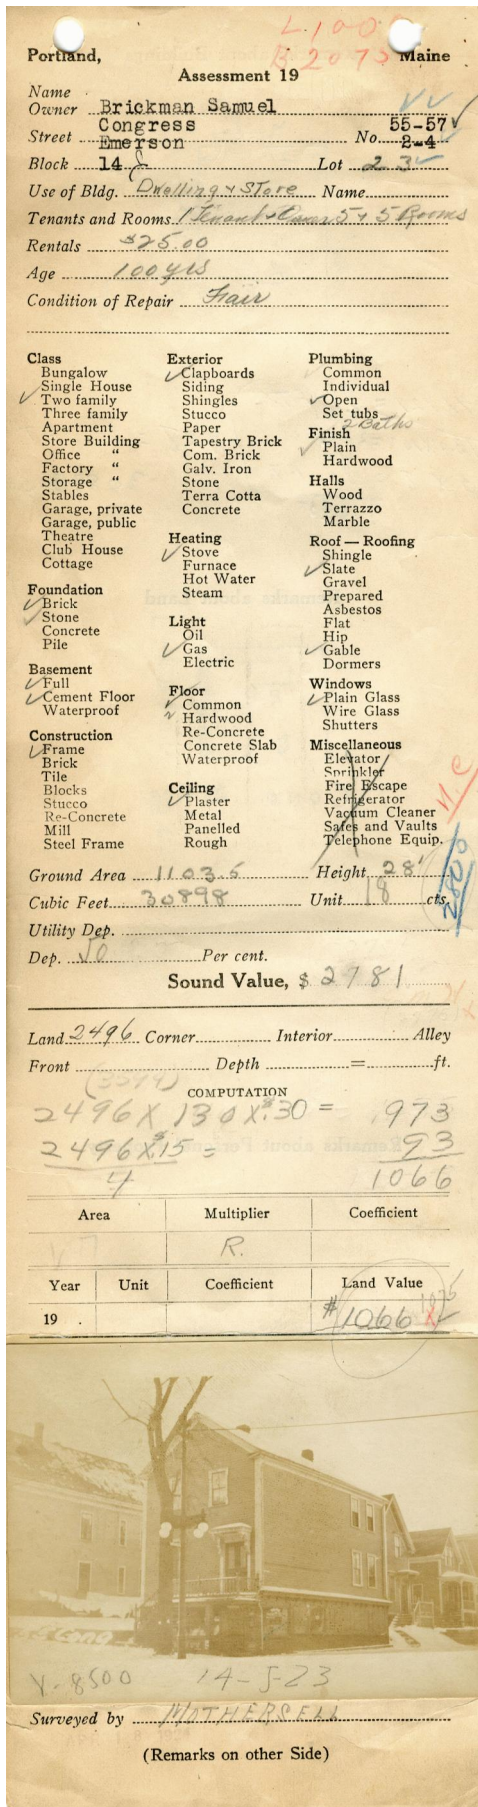 L.1000
B 2075
Portland, Maine
Assessment 19
Name
Owner Brickman Samuel
Congress 55-57
Street Emerson No. 2-4
Block 14 J Lot 23
Use of Bldg. Dwelling + Store Name
Tenants and Rooms 1 Tenant + Owner 5 + 5 Rooms
Rentals $25.00
Age 100 yrs
Condition of Repair Fair
Class
Bungalow
Single House
Two family
Three family
Apartment
Store Building
Office "
Factory "
Storage "
Stables
Garage, private
Garage, public
Theatre
Club House
Cottage
Foundation
Brick
Stone
Concrete
Pile
Basement
Full
Cement Floor
Waterproof
Construction
Frame
Brick
Tile
Blocks
Stucco
Re-Concrete
Mill
Steel Frame
Exterior
Clapboards
Siding
Shingles
Stucco
Paper
Tapestry Brick
Com. Brick
Galv. Iron
Stone
Terra Cotta
Concrete
Heating
Stove
Furnace
Hot Water
Steam
Light
Oil
Gas
Electric
Floor
Common
2 Hardwood
Re-Concrete
Concrete Slab
Waterproof
Ceiling
Plaster
Metal
Panelled
Rough
Plumbing
Common
Individual
Open
Set tubs
2 Baths
Finish
Plain
Hardwood
Halls
Wood
Terrazzo
Marble
Roof — Roofing
Shingle
Slate
Gravel
Prepared
Asbestos
Flat
Hip
Gable
Dormers
Windows
Plain Glass
Wire Glass
Shutters
Miscellaneous
Elevator
Sprinkler
Fire Escape
Refrigerator
Vacuum Cleaner
Safes and Vaults
Telephone Equip.
N.C
2800
Ground Area 1103.5 Height 28'
Cubic Feet 30898 Unit 18 cts.
Utility Dep.
Dep. 50 Per cent.
Sound Value, $ 2781
Land 2496 Corner Interior Alley
Front Depth = ft.
COMPUTATION
2496 X 130 X $.30 = 973
2496 X $.15 = 93
4 1066
Area Multiplier Coefficient
R.
Year Unit Coefficient Land Value
1075
19 . $1066
V-8500 14-J-23
Surveyed by MOTHERSELL
(Remarks on other Side)